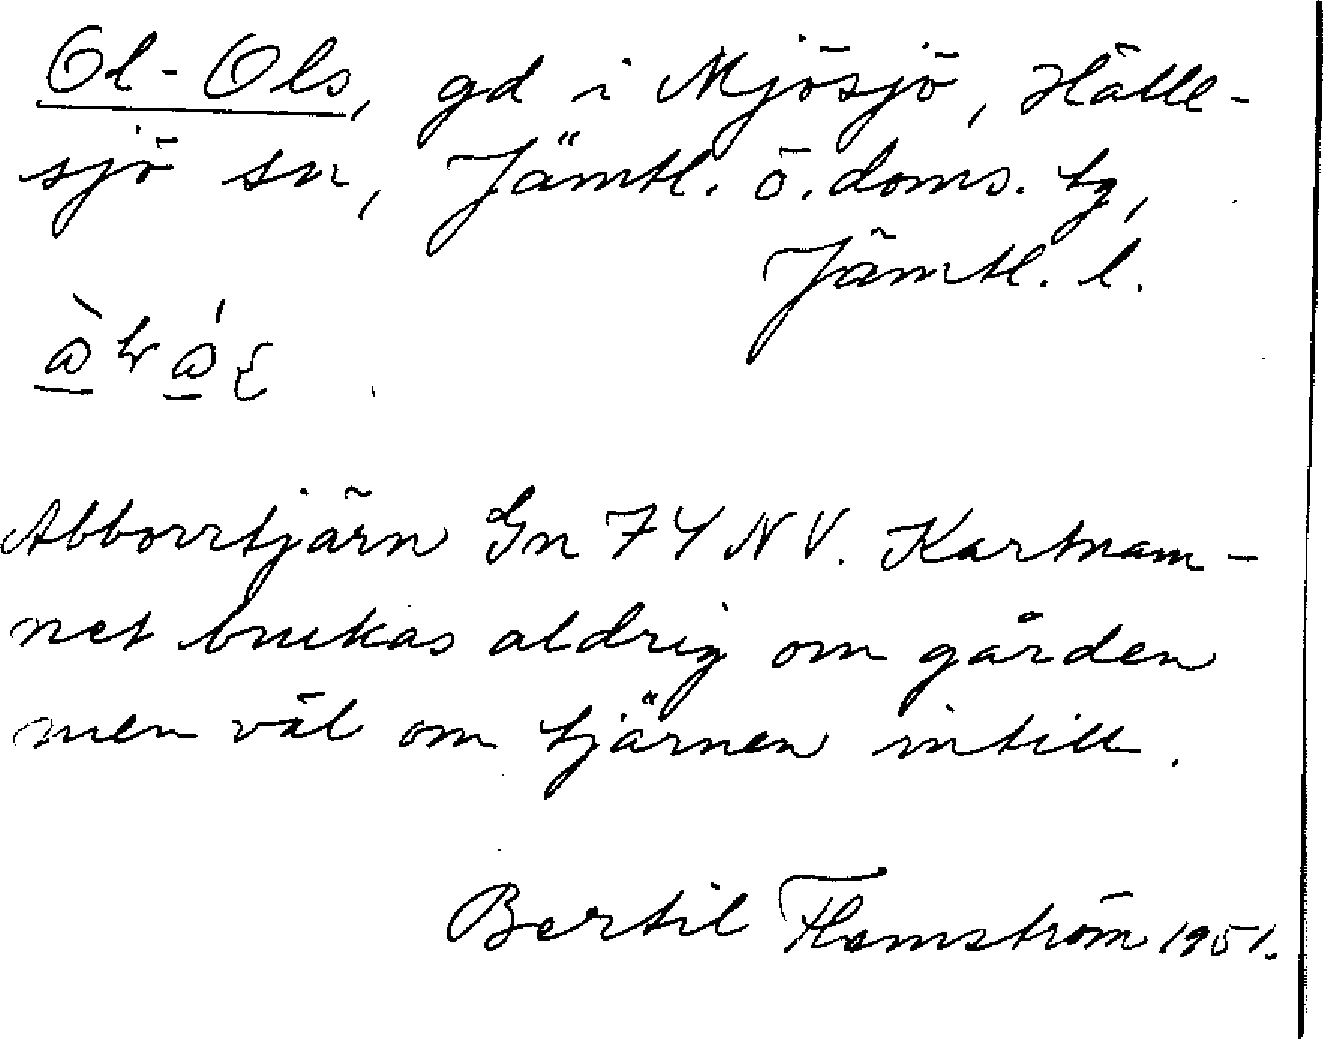 Ol-Ols, gd i Mjösjö, Hälle-
sjö sn, Jämtl. ö. doms. tg,
Jämtl. l.
Abborrtjärn Gn 74 NV. Kartnam-
net brukas aldrig om gården
men väl om tjärnen intill.
Bertil Flemström 1951.